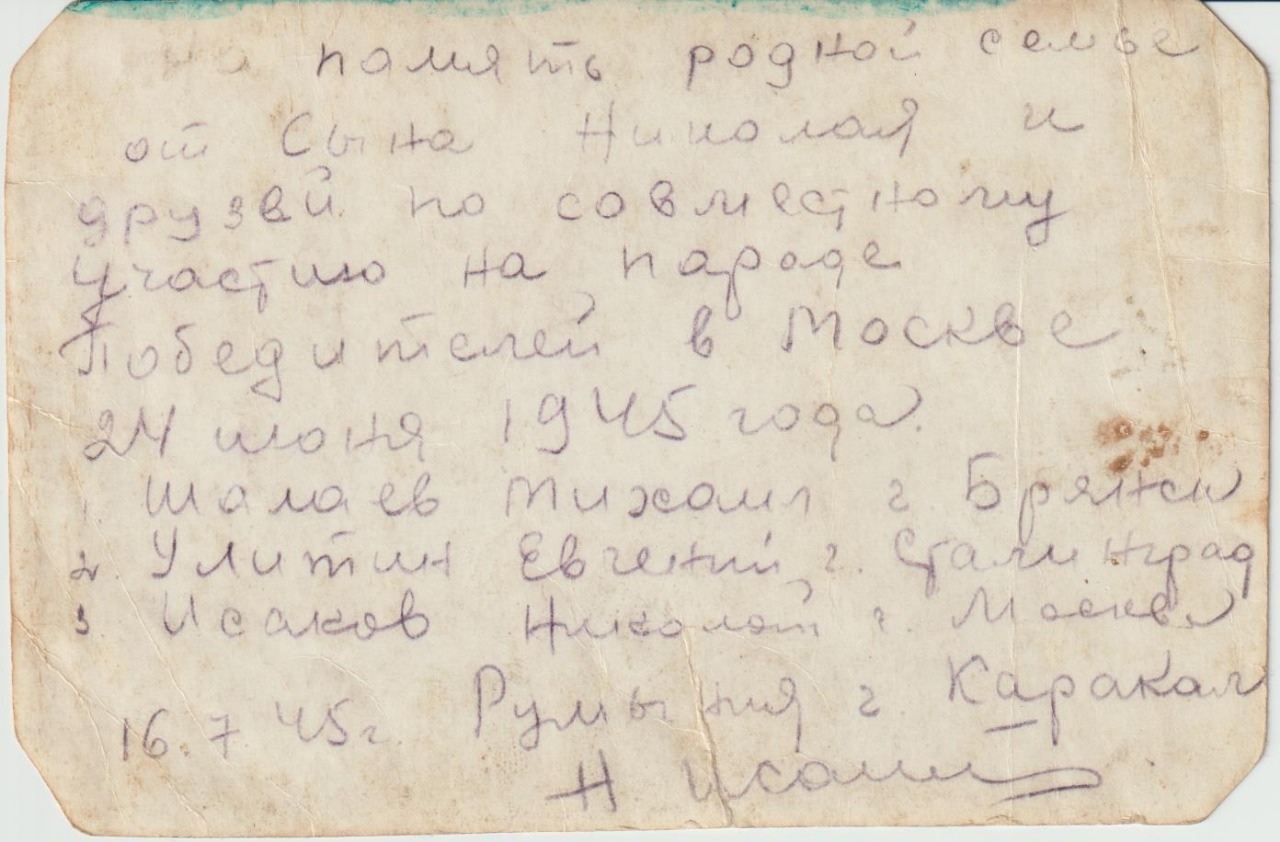 На память родной семье
от Сына Николая и
друзей по совместному
участию на параде
Победителей в Москве
24 июня 1945 года.
1 Шалаев Михаил г. Брянск
2. Улитин Евгений г. Сталинград
3. Исаков Николай г. Москва
16.7 45г. Румыния г. Каракал
Н Исаков